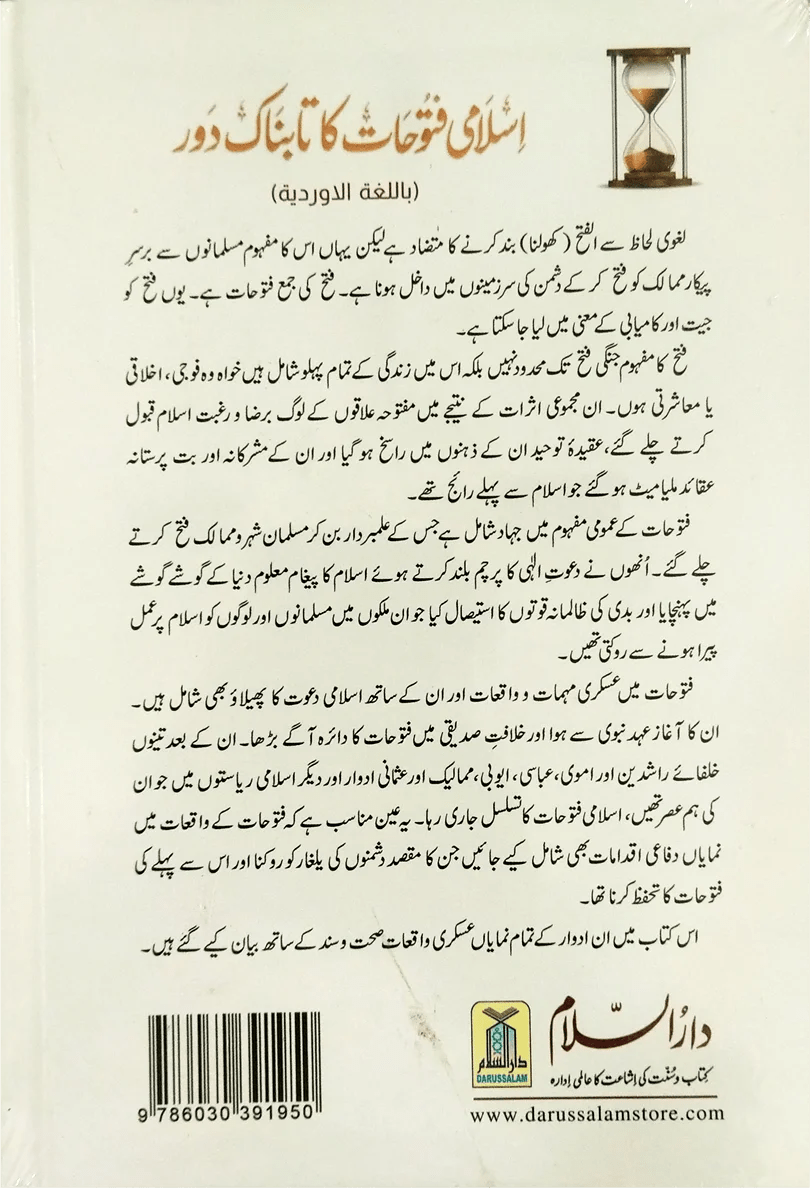 اسلامی فتوحات کا تابناک دَور
(باللغة الاوردية)
لغوی لحاظ سے الفتح (کھولنا) بند کرنے کا متضاد ہے لیکن یہاں اس کا مفہوم مسلمانوں سے برسرِ
پیکار ممالک کو فتح کر کے دشمن کی سرزمینوں میں داخل ہونا ہے۔ فتح کی جمع فتوحات ہے۔ یوں فتح کو
جیت اور کامیابی کے معنی میں لیا جا سکتا ہے۔
فتح کا مفہوم جنگی فتح تک محدود نہیں بلکہ اس میں زندگی کے تمام پہلو شامل ہیں خواہ وہ فوجی، اخلاقی
یا معاشرتی ہوں۔ ان مجموعی اثرات کے نتیجے میں مفتوحہ علاقوں کے لوگ برضا و رغبت اسلام قبول
کرتے چلے گئے، عقیدۂ توحید ان کے ذہنوں میں راسخ ہو گیا اور ان کے مشرکانہ اور بت پرستانہ
عقائد ملیامیٹ ہو گئے جو اسلام سے پہلے رائج تھے۔
فتوحات کے عمومی مفہوم میں جہاد شامل ہے جس کے علمبردار بن کر مسلمان شہر و ممالک فتح کرتے
چلے گئے۔ اُنھوں نے دعوتِ الٰہی کا پرچم بلند کرتے ہوئے اسلام کا پیغام معلوم دنیا کے گوشے گوشے
میں پہنچایا اور بدی کی ظالمانہ قوتوں کا استیصال کیا جو ان ملکوں میں مسلمانوں اور لوگوں کو اسلام پر عمل
پیرا ہونے سے روکتی تھیں۔
فتوحات میں عسکری مہمات و واقعات اور ان کے ساتھ اسلامی دعوت کا پھیلاؤ بھی شامل ہیں۔
ان کا آغاز عہد نبوی سے ہوا اور خلافتِ صدیقی میں فتوحات کا دائرہ آگے بڑھا۔ ان کے بعد تینوں
خلفائے راشدین اور اموی، عباسی، ایوبی، ممالیک اور عثمانی ادوار اور دیگر اسلامی ریاستوں میں جو ان
کی ہم عصر تھیں، اسلامی فتوحات کا تسلسل جاری رہا۔ یہ عین مناسب ہے کہ فتوحات کے واقعات میں
نمایاں دفاعی اقدامات بھی شامل کیے جائیں جن کا مقصد دشمنوں کی یلغار کو روکنا اور اس سے پہلے کی
فتوحات کا تحفظ کرنا تھا۔
اس کتاب میں ان ادوار کے تمام نمایاں عسکری واقعات صحت و سند کے ساتھ بیان کیے گئے ہیں۔
دارُالسّلام
کتاب و سُنّت کی اشاعت کا عالمی ادارہ
دارالسلام
DARUSSALAM
www.darussalamstore.com
9 786030 391950